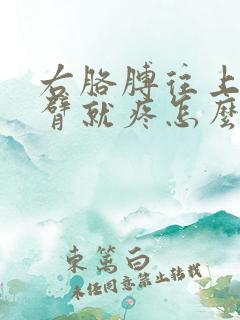 右胳膊往上
臂就疼怎麼
東篱白
未经同意禁止转载